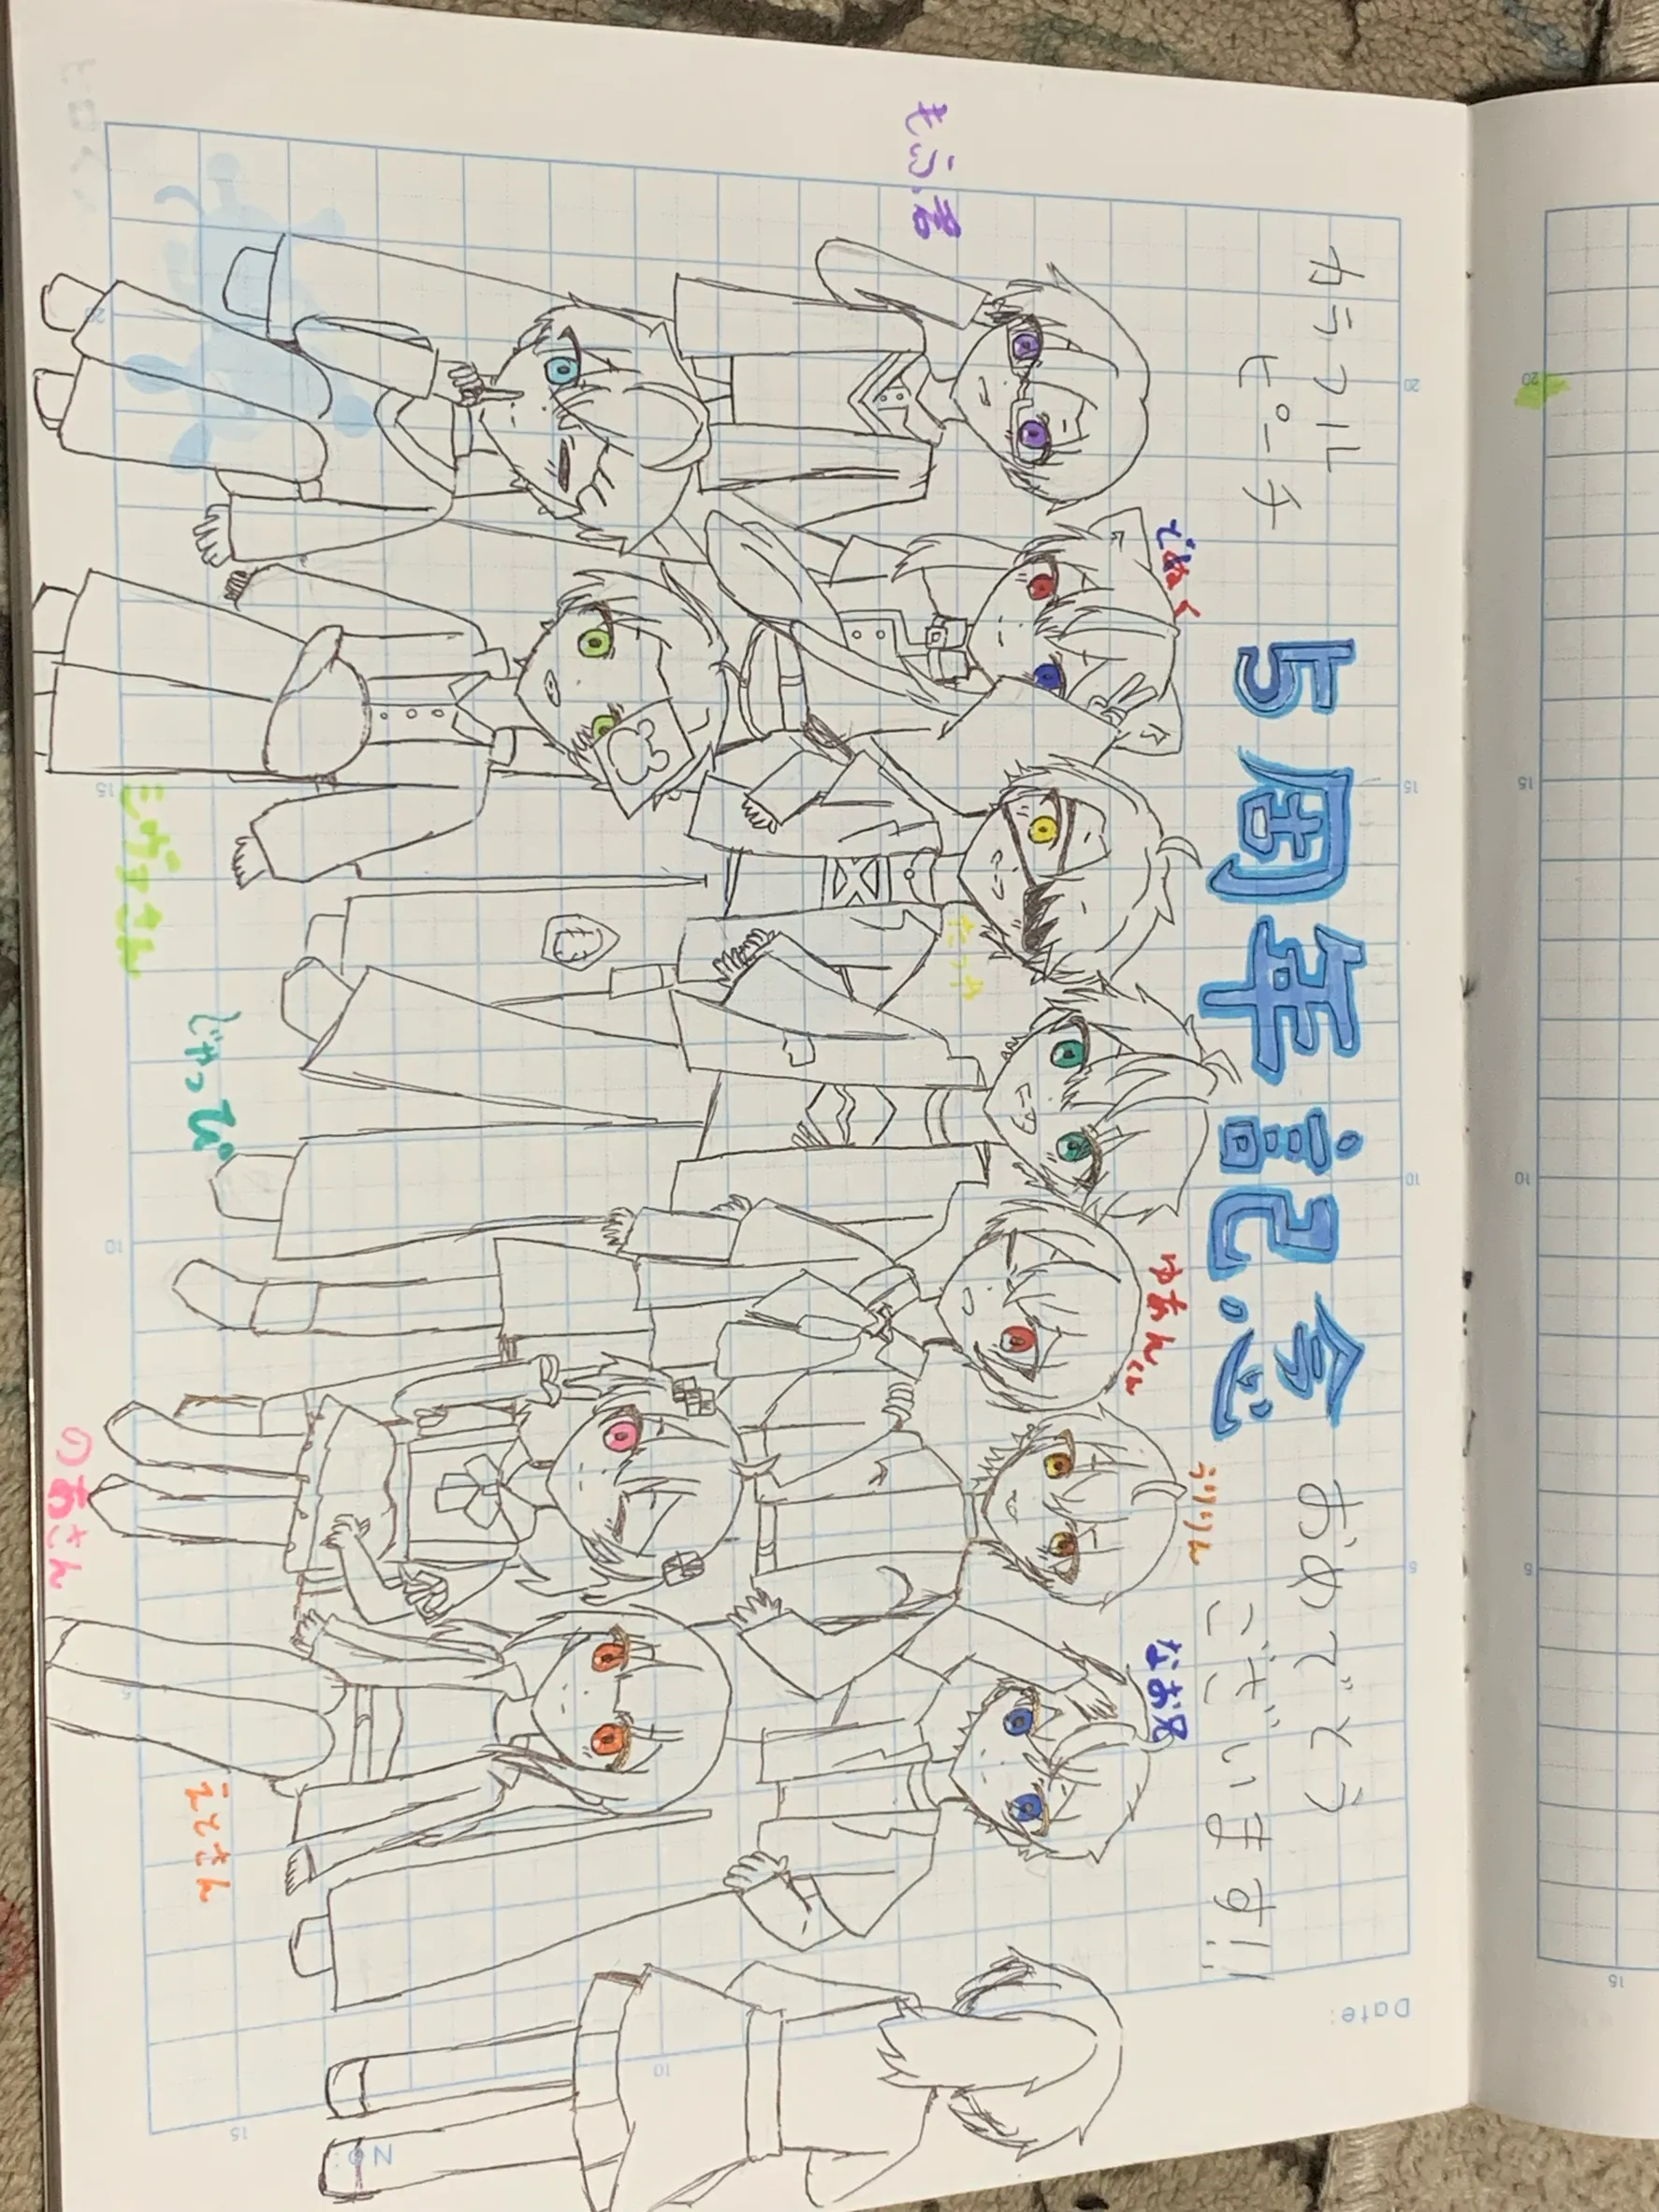 カラフル
ピーチ
5周年記念
おめでとう
ございます!!
もふ君
どぬく
たっつ
ゆあんくん
うりりん
なお兄
シヴァさん
じゃっぴ
のあさん
えとさん
Date:
No:
20
15
10
5
20
15
10
5
20
15
10
15
10
15